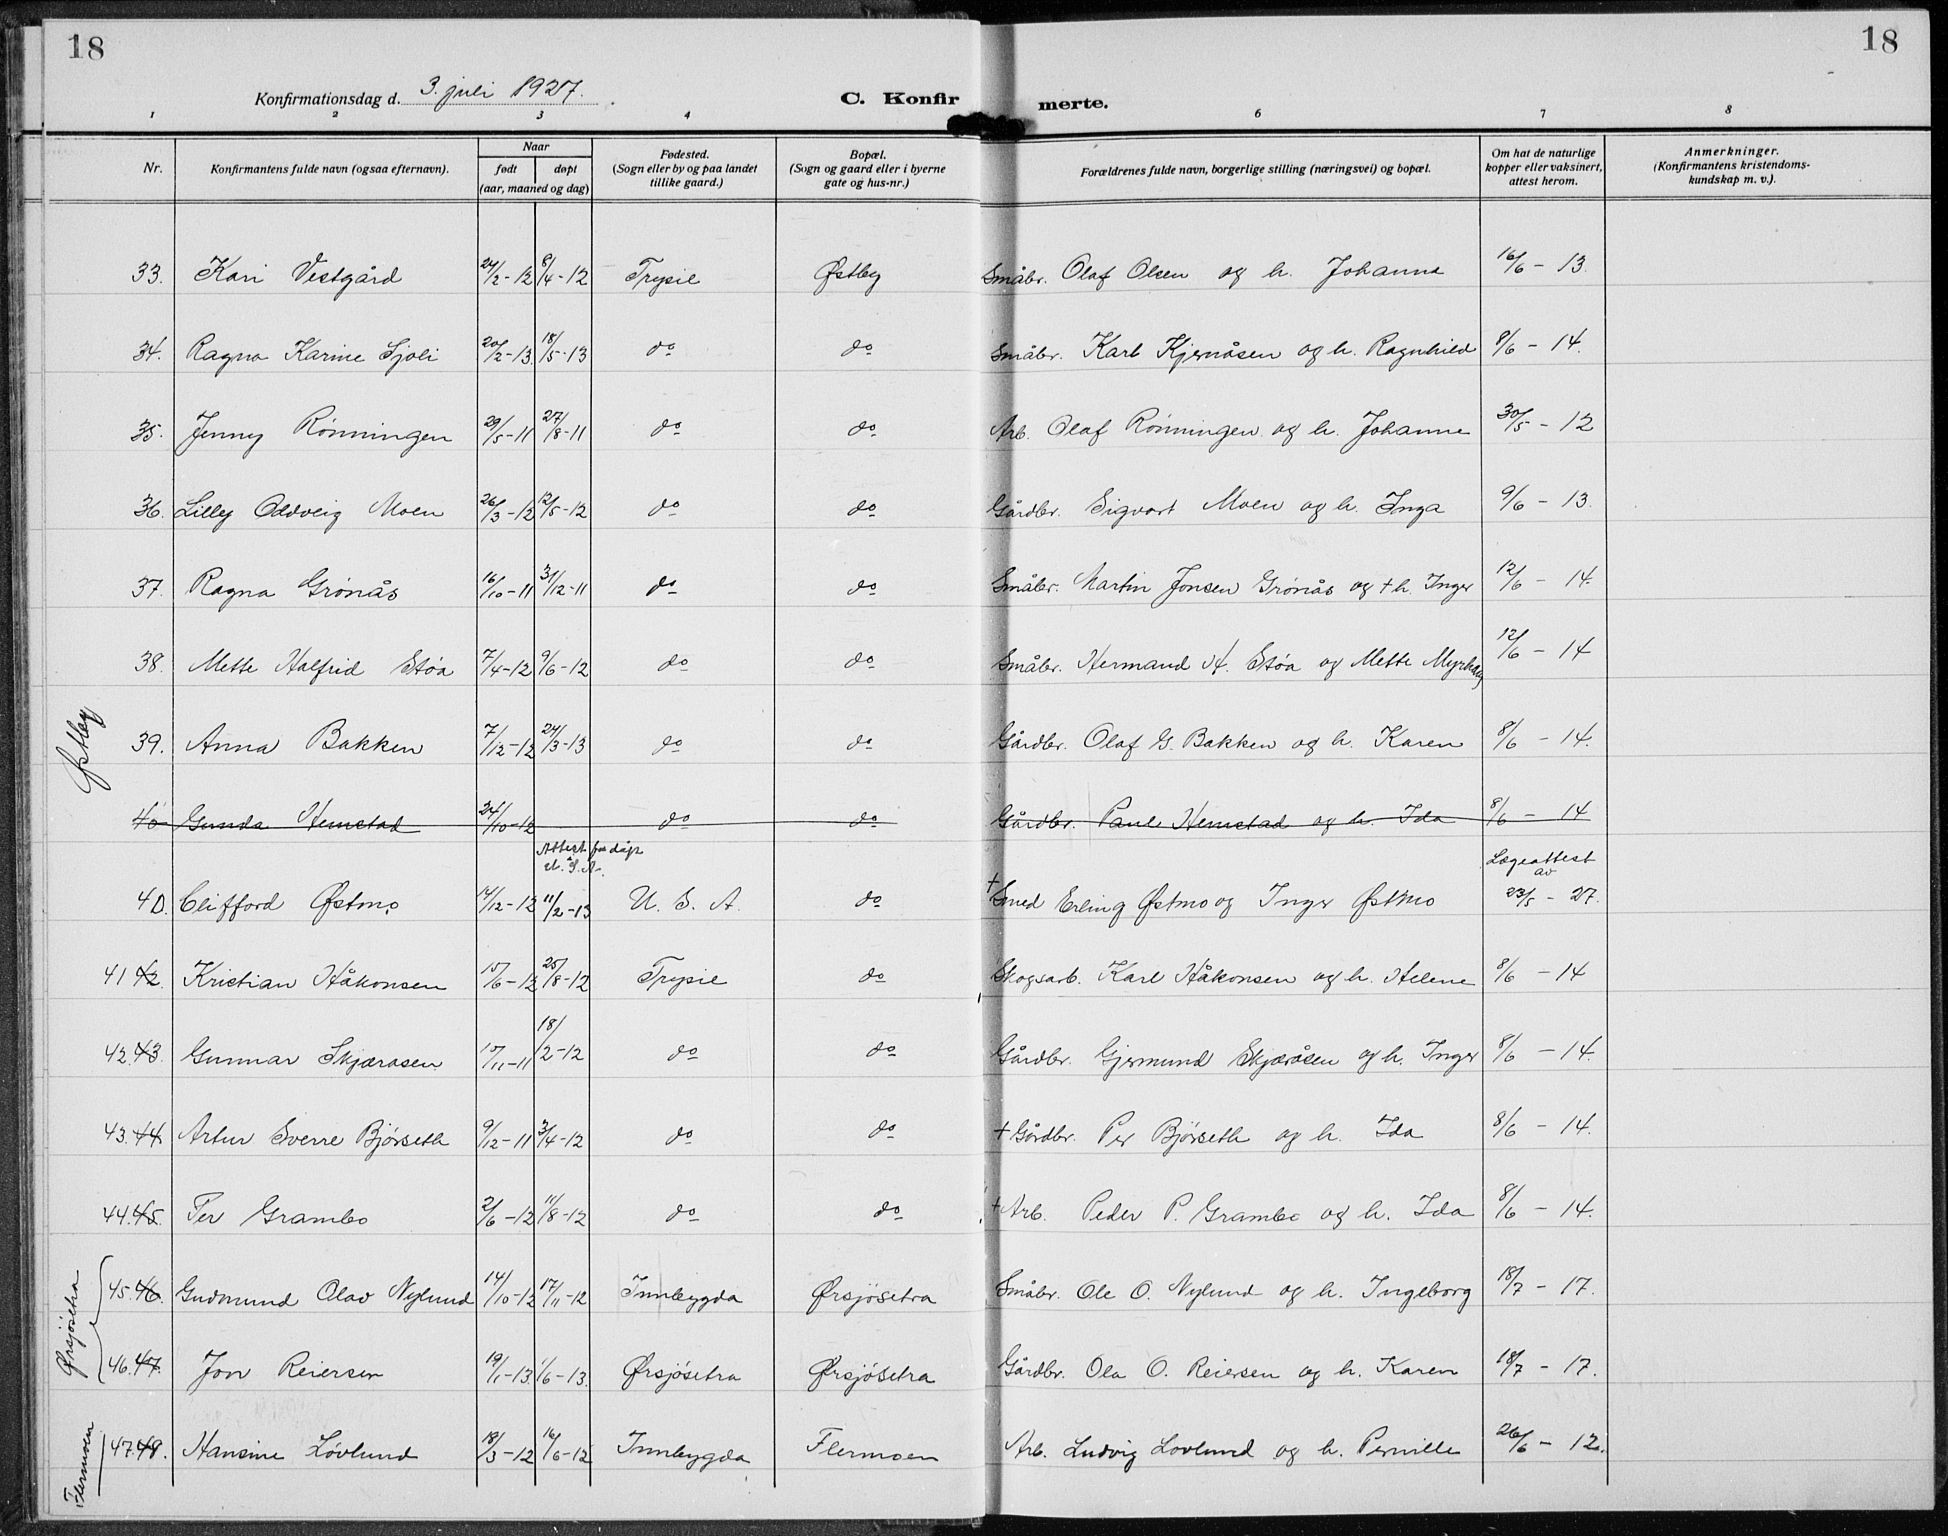 18
18
Konfirmationsdag d. 3. juli 1927.
C. Konfir merte.
1 2 3 4 5 6 7 8
Nr. Konfirmantens fulde navn (ogsaa efternavn). Naar født døpt (aar, maaned og dag) Fødested. (Sogn eller by og paa landet tillike gaard.) Bopæl. (Sogn og gaard eller i byerne gate og hus-nr.) Forældrenes fulde navn, borgerlige stilling (næringsvei) og bopæl. Om hat de naturlige kopper eller vaksinert, attest herom. Anmerkninger. (Konfirmantens kristendoms-kundskap m. v.).
33. Kari Vestgård 24/2-12 8/4-12 Trysil Østby Småbr. Olaf Olsen og h. Johanna 16/6 - 13.
34. Ragna Karine Sjøli 20/2-13. 18/5-13 do do Småbr. Karl Kjernåsen og h. Ragnhild 8/6 - 14.
35. Jenny Rønningen 29/5-11 27/8-11 do do Arb. Olaf Rønningen og h. Johanne 30/5 - 12
36. Lilly Oddveig Moen 26/3-12 12/5-12 do do Gårdbr. Sigvart Moen og h. Inga 9/6 - 13.
37. Ragna Grønås 16/10-11 31/12-11 do do Småbr. Martin Jonsen Grønås og + h. Inger 12/6 - 14.
38. Mette Halfrid Støa 7/4-12 9/6-12 do do Småbr. Hermand H. Støa og Mette 12/6 - 14
Østby
39. Anna Bakken 7/12-12 24/3-13 do do Gårdbr. Olaf G. Bakken og h. Karen 8/6 - 14.
40 Gunda Hemstad 24/10-12 do do Gårdbr. Paul Hemstad og h. Ida 8/6 - 14
Attest for dåp U.S.A. Lægeattest av
40. Clifford Østmo 14/12-12 11/2-13 U. S. A. do + Smed Erling Østmo og Inger Østmo 23/5 - 27.
41 42. Kristian Håkonsen 15/6-12 25/8-12 Trysil do Skogsarb. Karl Håkonsen og h. Helene 8/6 - 14
42. 43. Gunnar Skjærasen 15/11-11 18/2-12 do do Gårdbr. Gjermund Skjæråsen og h. Inger 8/6 - 14.
43. 44. Artur Sverre Bjørseth 9/12-11 3/4-12 do do + Gårdbr. Per Bjørseth og h. Ida 8/6 - 14.
44. 45. Per Grambo 2/6-12 11/8-12 do do + Arb. Peder P. Grambo og h. Ida 8/6 - 14.
Ørsjøsetra
45. 46. Gudmund Olav Nylund 14/10-12 17/11-12 Innbygda Ørsjøsetra Småbr. Ole O. Nylund og h. Ingeborg 18/7 - 17.
46. 47. Jon Reiersen 19/1-13. 1/6-13. Ørsjøsetra Ørsjøsetra Gårdbr. Ola O. Reiersen og h. Karen 18/7 - 17.
Flermoen
47. 48. Hansine Løvlund 18/3-12 16/6-12 Innbygda Flermoen Arb. Ludvig Lovlund og h. Pernille 26/6 - 12.